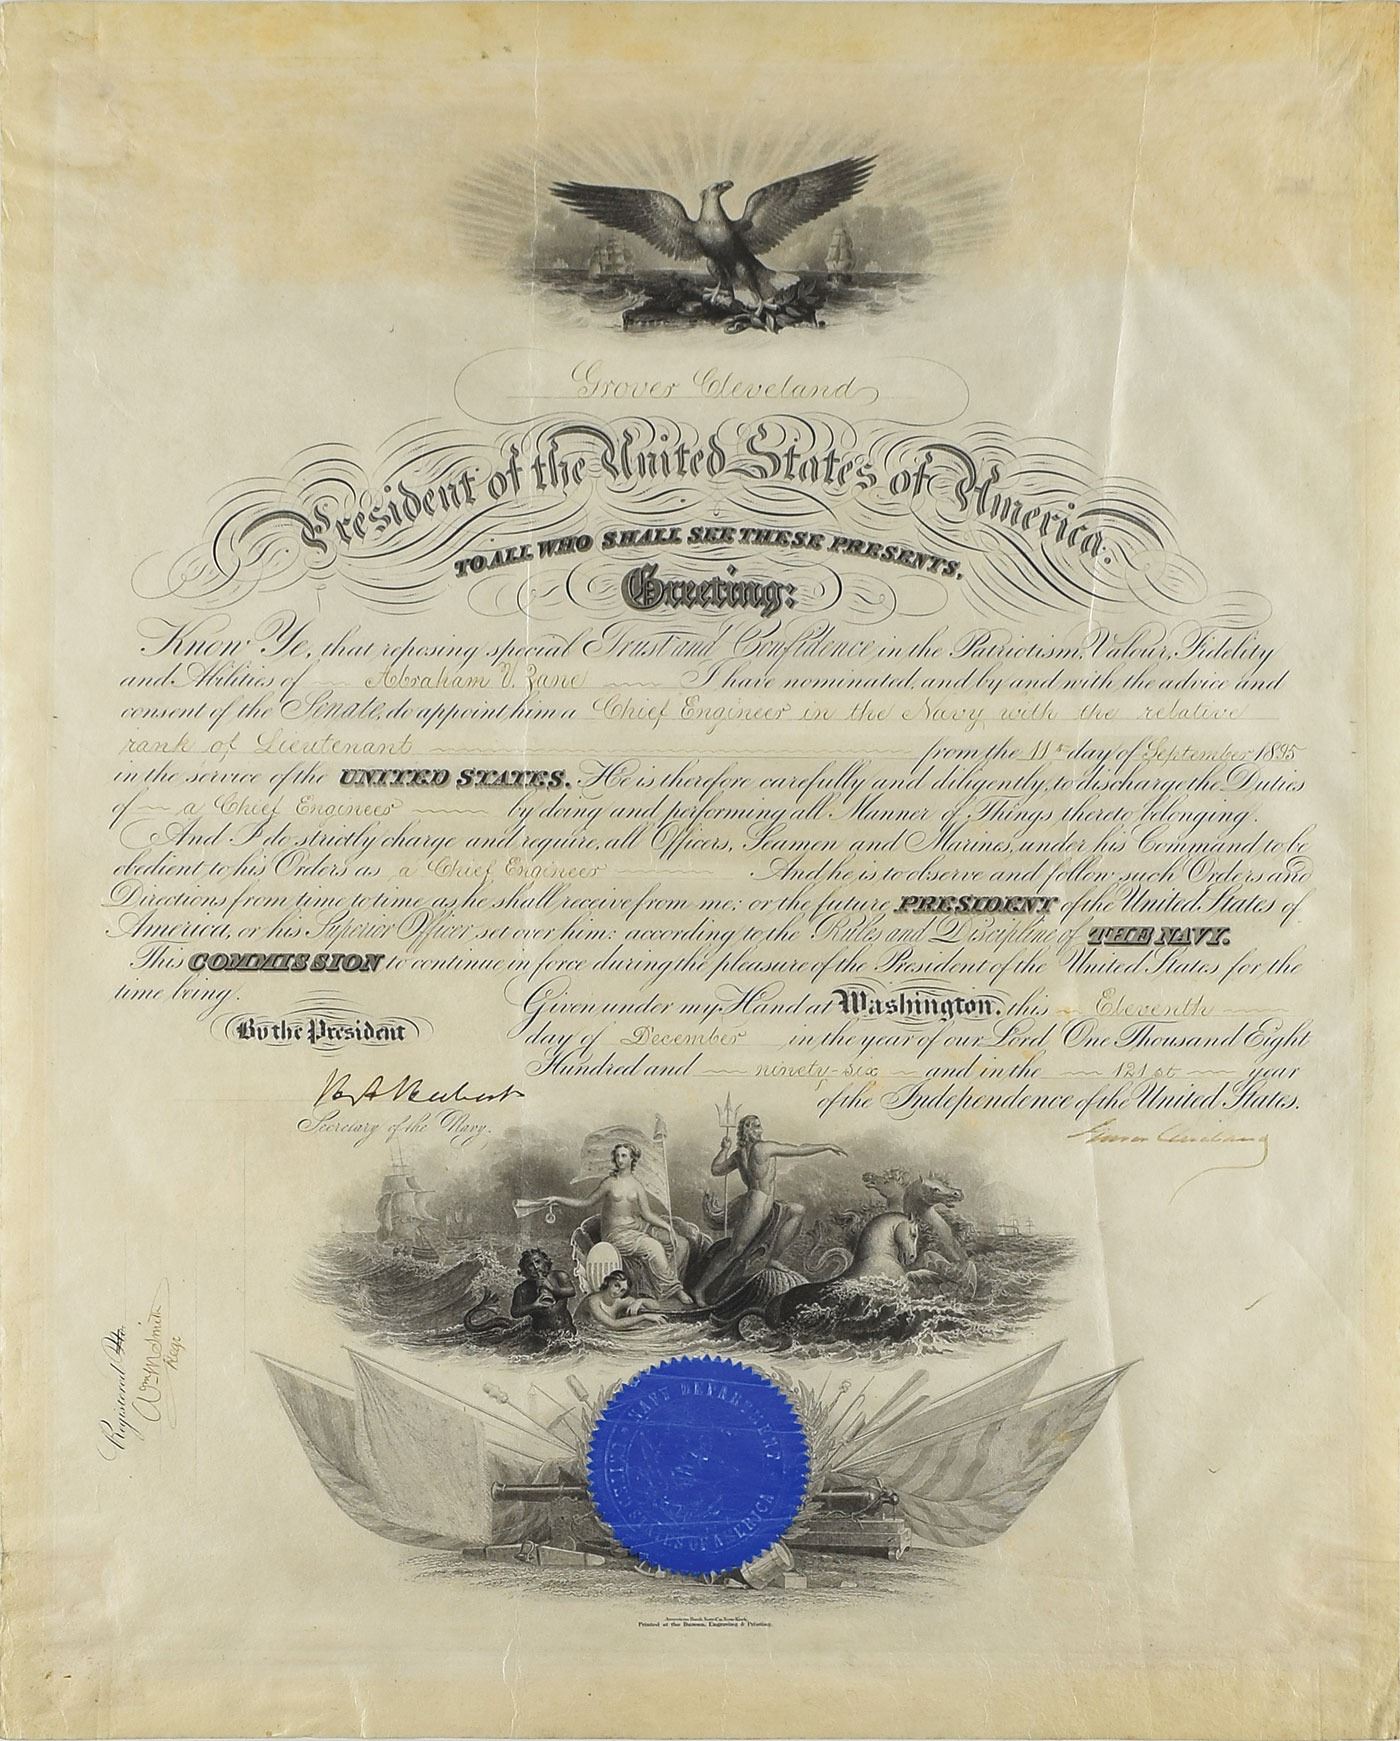 Grover Cleveland
President of the United States of America.
TO ALL WHO SHALL SEE THESE PRESENTS,
Greeting:
Know Ye, that reposing special Trust and Confidence in the Patriotism, Valour, Fidelity
and Abilities of Abraham V. Zane I have nominated, and by and with the advice and
consent of the Senate, do appoint him a Chief Engineer in the Navy with the relative
rank of Lieutenant from the 11th day of September 1895
in the service of the UNITED STATES. He is therefore carefully and diligently, to discharge the Duties
of a Chief Engineer by doing and performing all Manner of Things thereto belonging.
And I do strictly charge and require, all Officers, Seamen and Marines, under his Command to be
obedient to his Orders as a Chief Engineer And he is to observe and follow such Orders and
Directions from time to time as he shall receive from me; or the future PRESIDENT of the United States of
America, or his Superior Officer set over him: according to the Rules and Discipline of THE NAVY.
This COMMISSION to continue in force during the pleasure of the President of the United States for the
time being.
Given under my Hand at Washington, this Eleventh
By the President
day of December in the year of our Lord One Thousand Eight
Hundred and ninety-six and in the 121st year
of the Independence of the United States.
H A Herbert
Secretary of the Navy.
Grover Cleveland
Registered No.
Wm M Smith
Regr
NAVY DEPARTMENT
UNITED STATES OF AMERICA
American Bank Note Co. New-York.
Printed at the Bureau, Engraving & Printing.